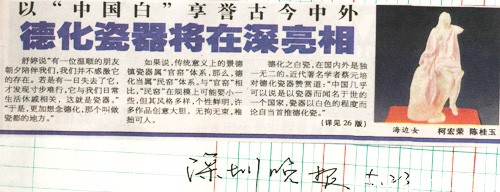 以“中国白”享誉古今中外
德化瓷器将在深亮相
舒婷说“有一位温顺的朋友
朝夕陪伴我们,我们并不感激它
的存在。若是有一日失去了它,
才发现寸步难行,它与我们日常
生活休戚相关,这就是瓷器。”
“于是,更加想念德化,那个叫做
瓷都的地方。”
如果说,传统意义上的景德
镇瓷器属“官窑”体系,那么,德
化当属“民窑”体系。与“官窑”相
比,“民窑”在规模上可能要小一
些,但其风格多样,个性鲜明,许
多作品创意大胆,无拘无束,稚
拙可人。
德化之白瓷,在国内外是独
一无二的,近代著名学者蔡元培
对德化瓷器赞赏道:“中国几乎
可以说是以瓷器而闻名于世的
一个国家,瓷器以白色的程度而
论自当首推德化瓷。”
(详见26版)
海边女 柯宏荣 陈桂玉
深圳晚报 5.23